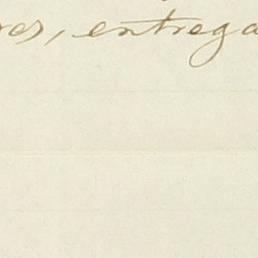 res, entrega